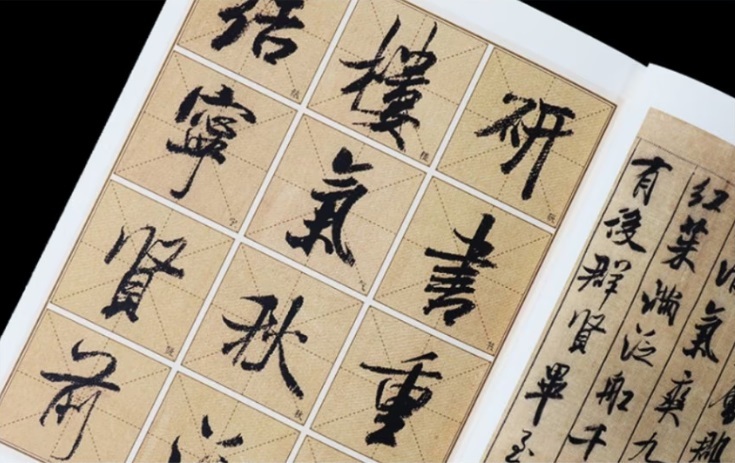 研書重
樓氣秋
结寧賢前
郡
氣爽九
红葉滿泛船千
有後群賢畢至